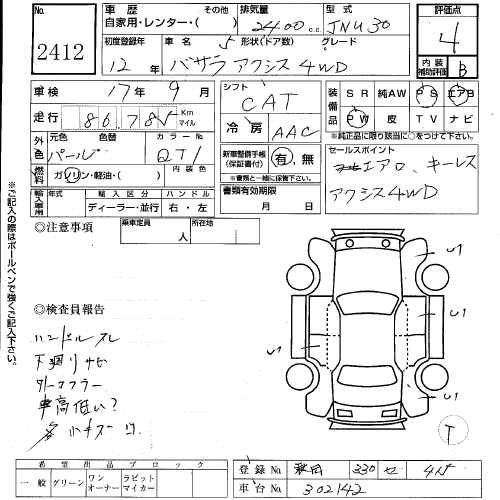 No.
2412
車歴 その他
自家用・レンター・( )
排気量
2400 c.c.
型式
JNU30
評価点
4
内装
補助評価 B
初度登録年
12年
車名 形状(ドア数) グレード
バサラ アクシス 4WD 5
車検 17年9月
走行 86,785 Km
マイル
シフト
CAT
装備品
SR 純AW PS エアB
PW 皮 TV ナビ
※純正品に限り該当に○をつけて下さい。
冷房
AAC
外色 元色 色替 カラーNo.
パール QT1
燃料 ガソリン・軽油・( )
新車整備手帳
(保証書付) 有・無
※書類と一緒に保管して下さい。
セールスポイント
エアロ、キーレス
アクシス4WD
輸入車用 年式 輸入区分 ハンドル
ディーラー・並行 右・左
書類有効期限
月 日
◎注意事項
乗車定員 人
所在地
※ご記入の際はボールペンで強くご記入下さい。
◎検査員報告
ハンドルスレ
下廻りサビ
マフラー
車高低い?
多 小キズ 凹
U1
U1
U1
U1
T
希望出品ブロック
一般 グリーン ワンオーナー ラビットマイカー
登録No. 秋田 330 せ
車台No. 302142